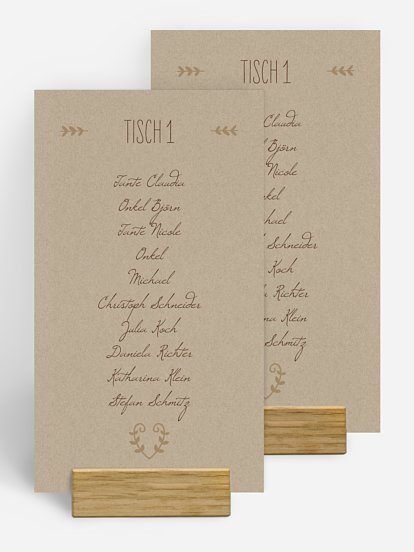 TISCH 1
Tante Claudia
Onkel Björn
Tante Nicole
Onkel
Michael
Christoph Schneider
Julia Koch
Daniela Richter
Katharina Klein
Stefan Schmitz
TISCH 1
Claudia
Björn
Nicole
kel
hael
Schneider
Koch
Richter
Klein
Schmitz